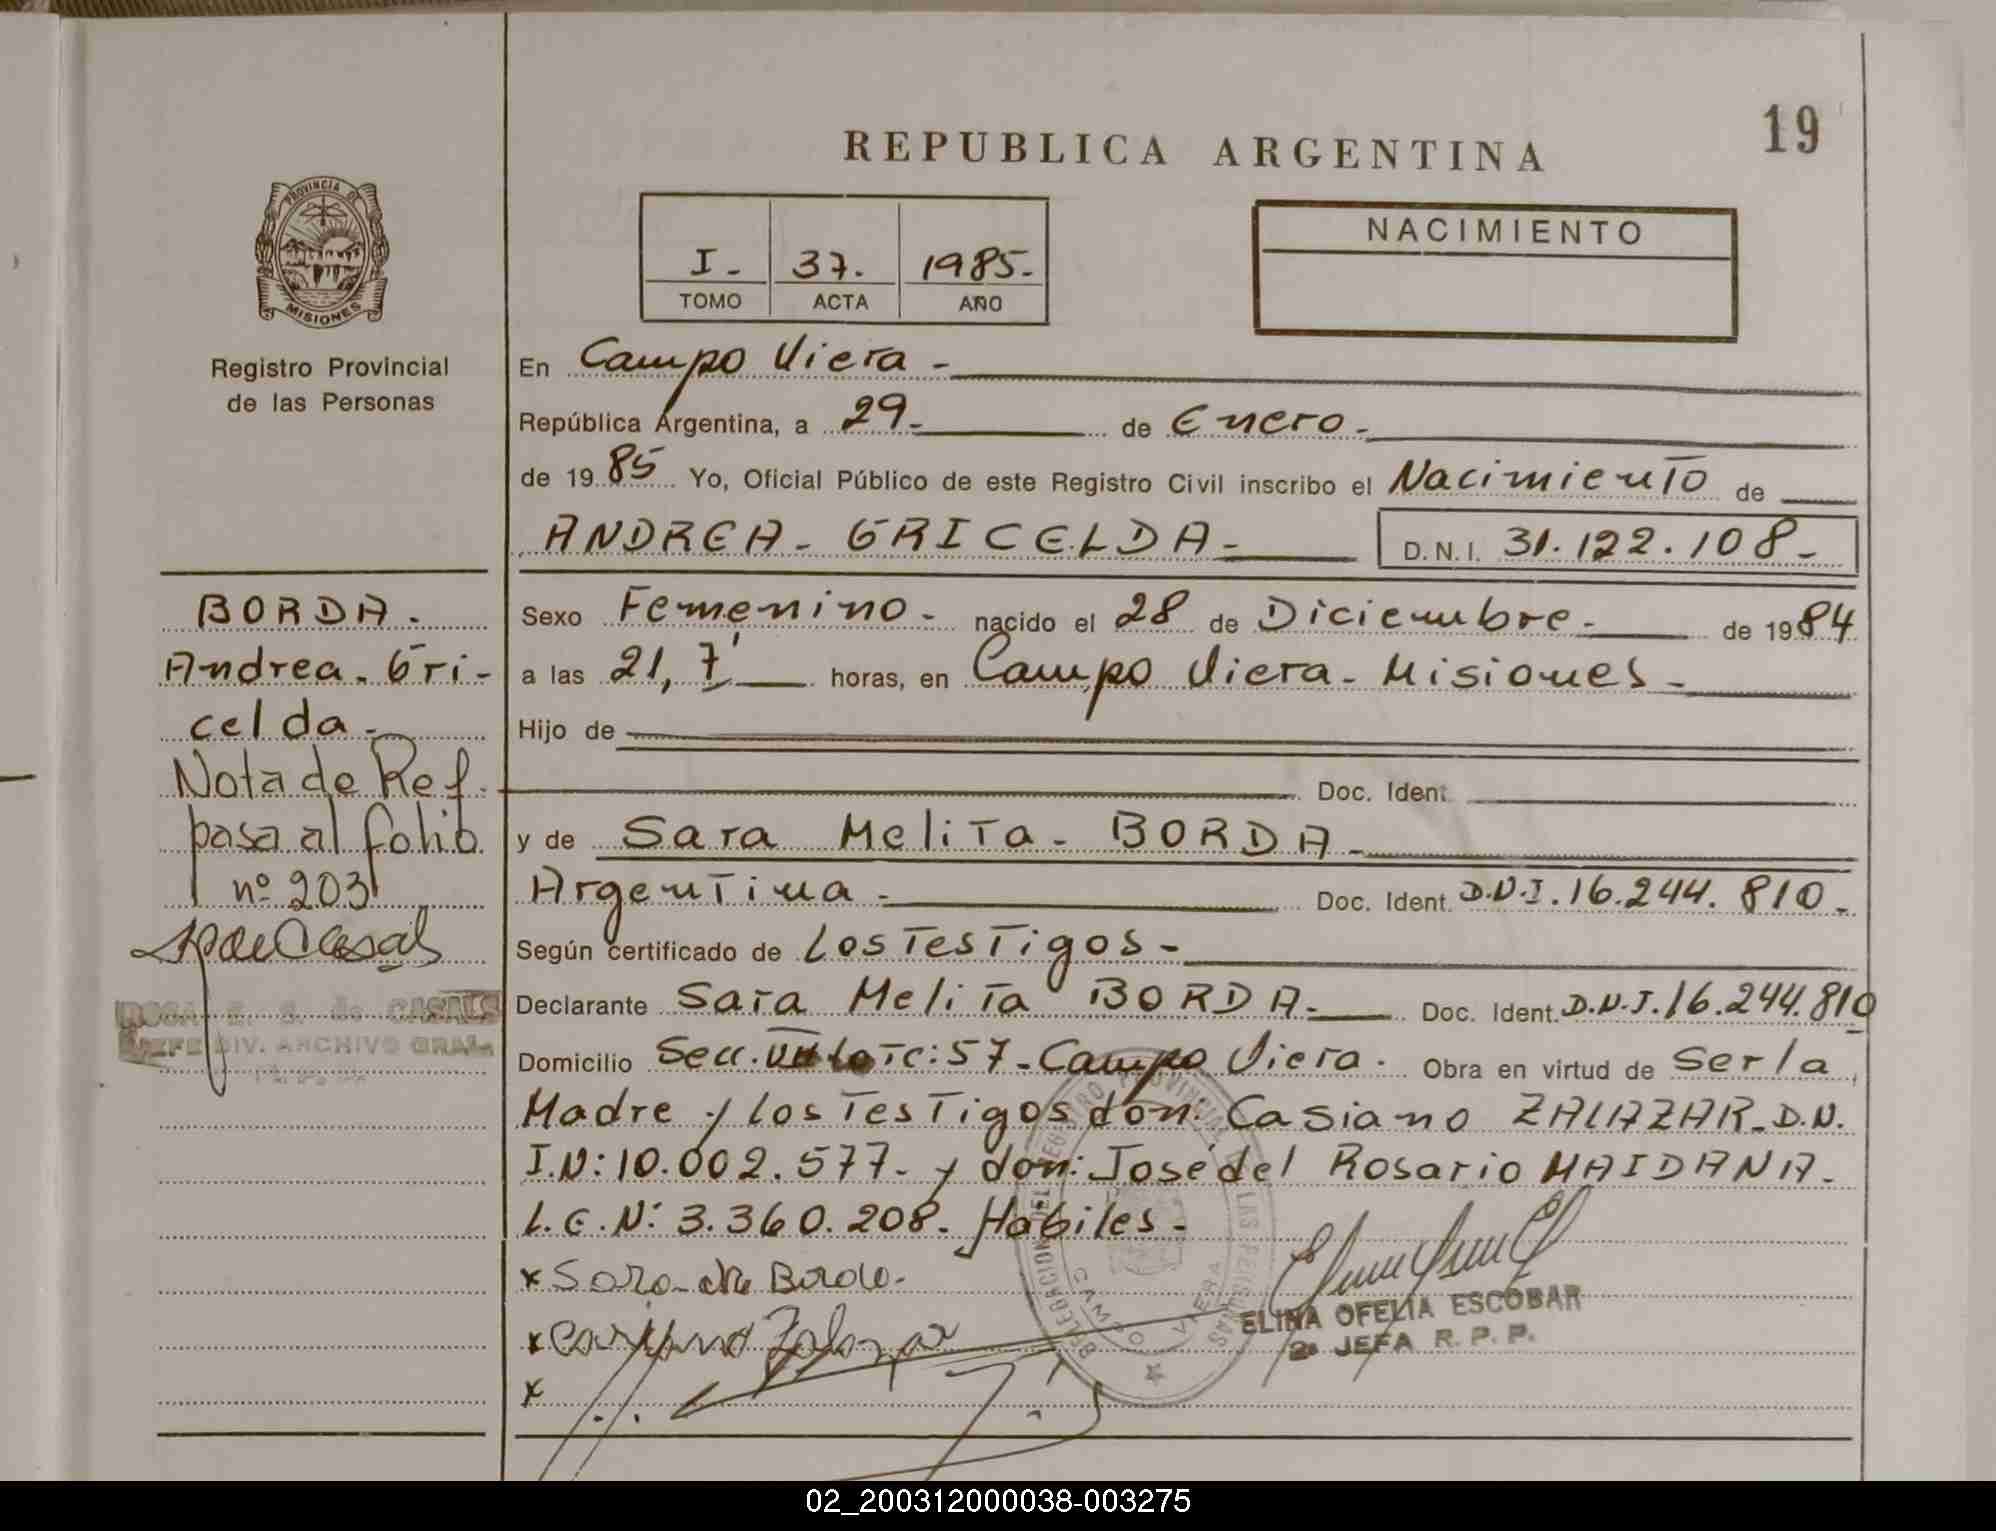 19
REPUBLICA ARGENTINA
PROVINCIA DE
MISIONES
Registro Provincial
de las Personas
I.- 37. 1985.-
TOMO ACTA AÑO
NACIMIENTO
En Campo Viera -
República Argentina, a 29.- de Enero.-
de 1985 Yo, Oficial Público de este Registro Civil inscribo el Nacimiento de
ANDREA - GRICELDA - D.N.I. 31.122.108-
Sexo Femenino - nacido el 28 de Diciembre - de 1984
a las 21,7' horas, en Campo Viera - Misiones -
Hijo de
Doc. Ident.
y de Sara Melita - BORDA -
Argentina - Doc. Ident. D.N.I. 16.244.810-
Según certificado de Los Testigos -
Declarante Sara Melita BORDA - Doc. Ident. D.N.I. 16.244.810
Domicilio Secc. VII Lote: 57 - Campo Viera. Obra en virtud de Ser la
Madre y los Testigos don: Casiano ZALAZAR - D.N.
I.N: 10.002.577- y don: José del Rosario MAIDANA -
L.E.N: 3.360.208- Habiles -
x
x Zalazar
x
ELINA OFELIA ESCOBAR
2a JEFA R.P.P.
DELEGACION DEL REGISTRO PROVINCIAL DE LAS PERSONAS
CAMPO VIERA
BORDA.
Andrea - Gri-
celda -
Nota de Ref.
pasa al folio
nº 203
ROSA E. S. de CASALS
JEFE DIV. ARCHIVO GRAL.
02_200312000038-003275